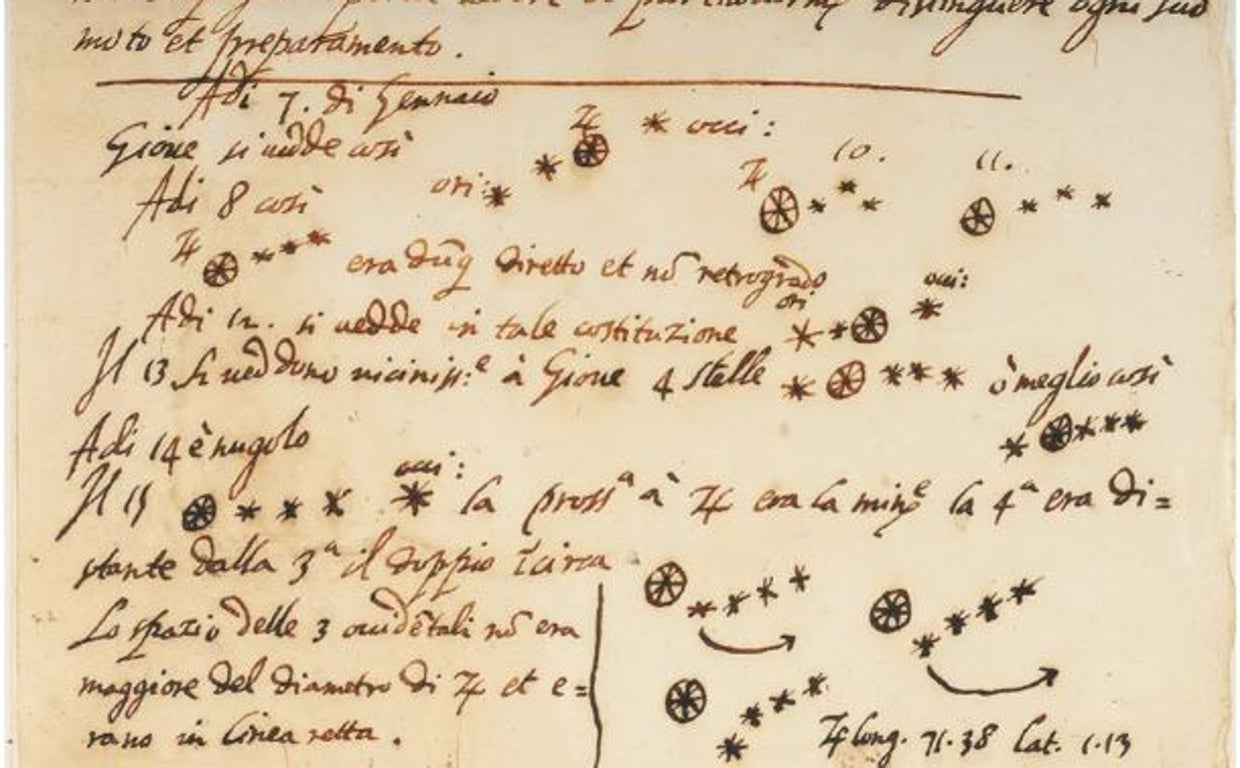 distinguere ogni suo
moto et preparamento.
Adi 7. di Gennaio
Gioue si uedde così ♃ occi:
ori:
Adi 8 così ♃ 10. 11.
♃ era dūq diretto et nō retrogrado
Adi 12. si uedde in tale costituzione ori occi:
Il 13 si ueddono uiciniss.e à Gioue 4 stelle ò meglio così
Adi 14 è nugolo
Il 15 occi: la pross.a à ♃ era la min.e la 4.a era di=
stante dalla 3.a il doppio ī circa
Lo spazio delle 3 occidētali nō era
maggiore del diametro di ♃ et e=
rano in linea retta.
♃ long. 71.38 lat. 1.13